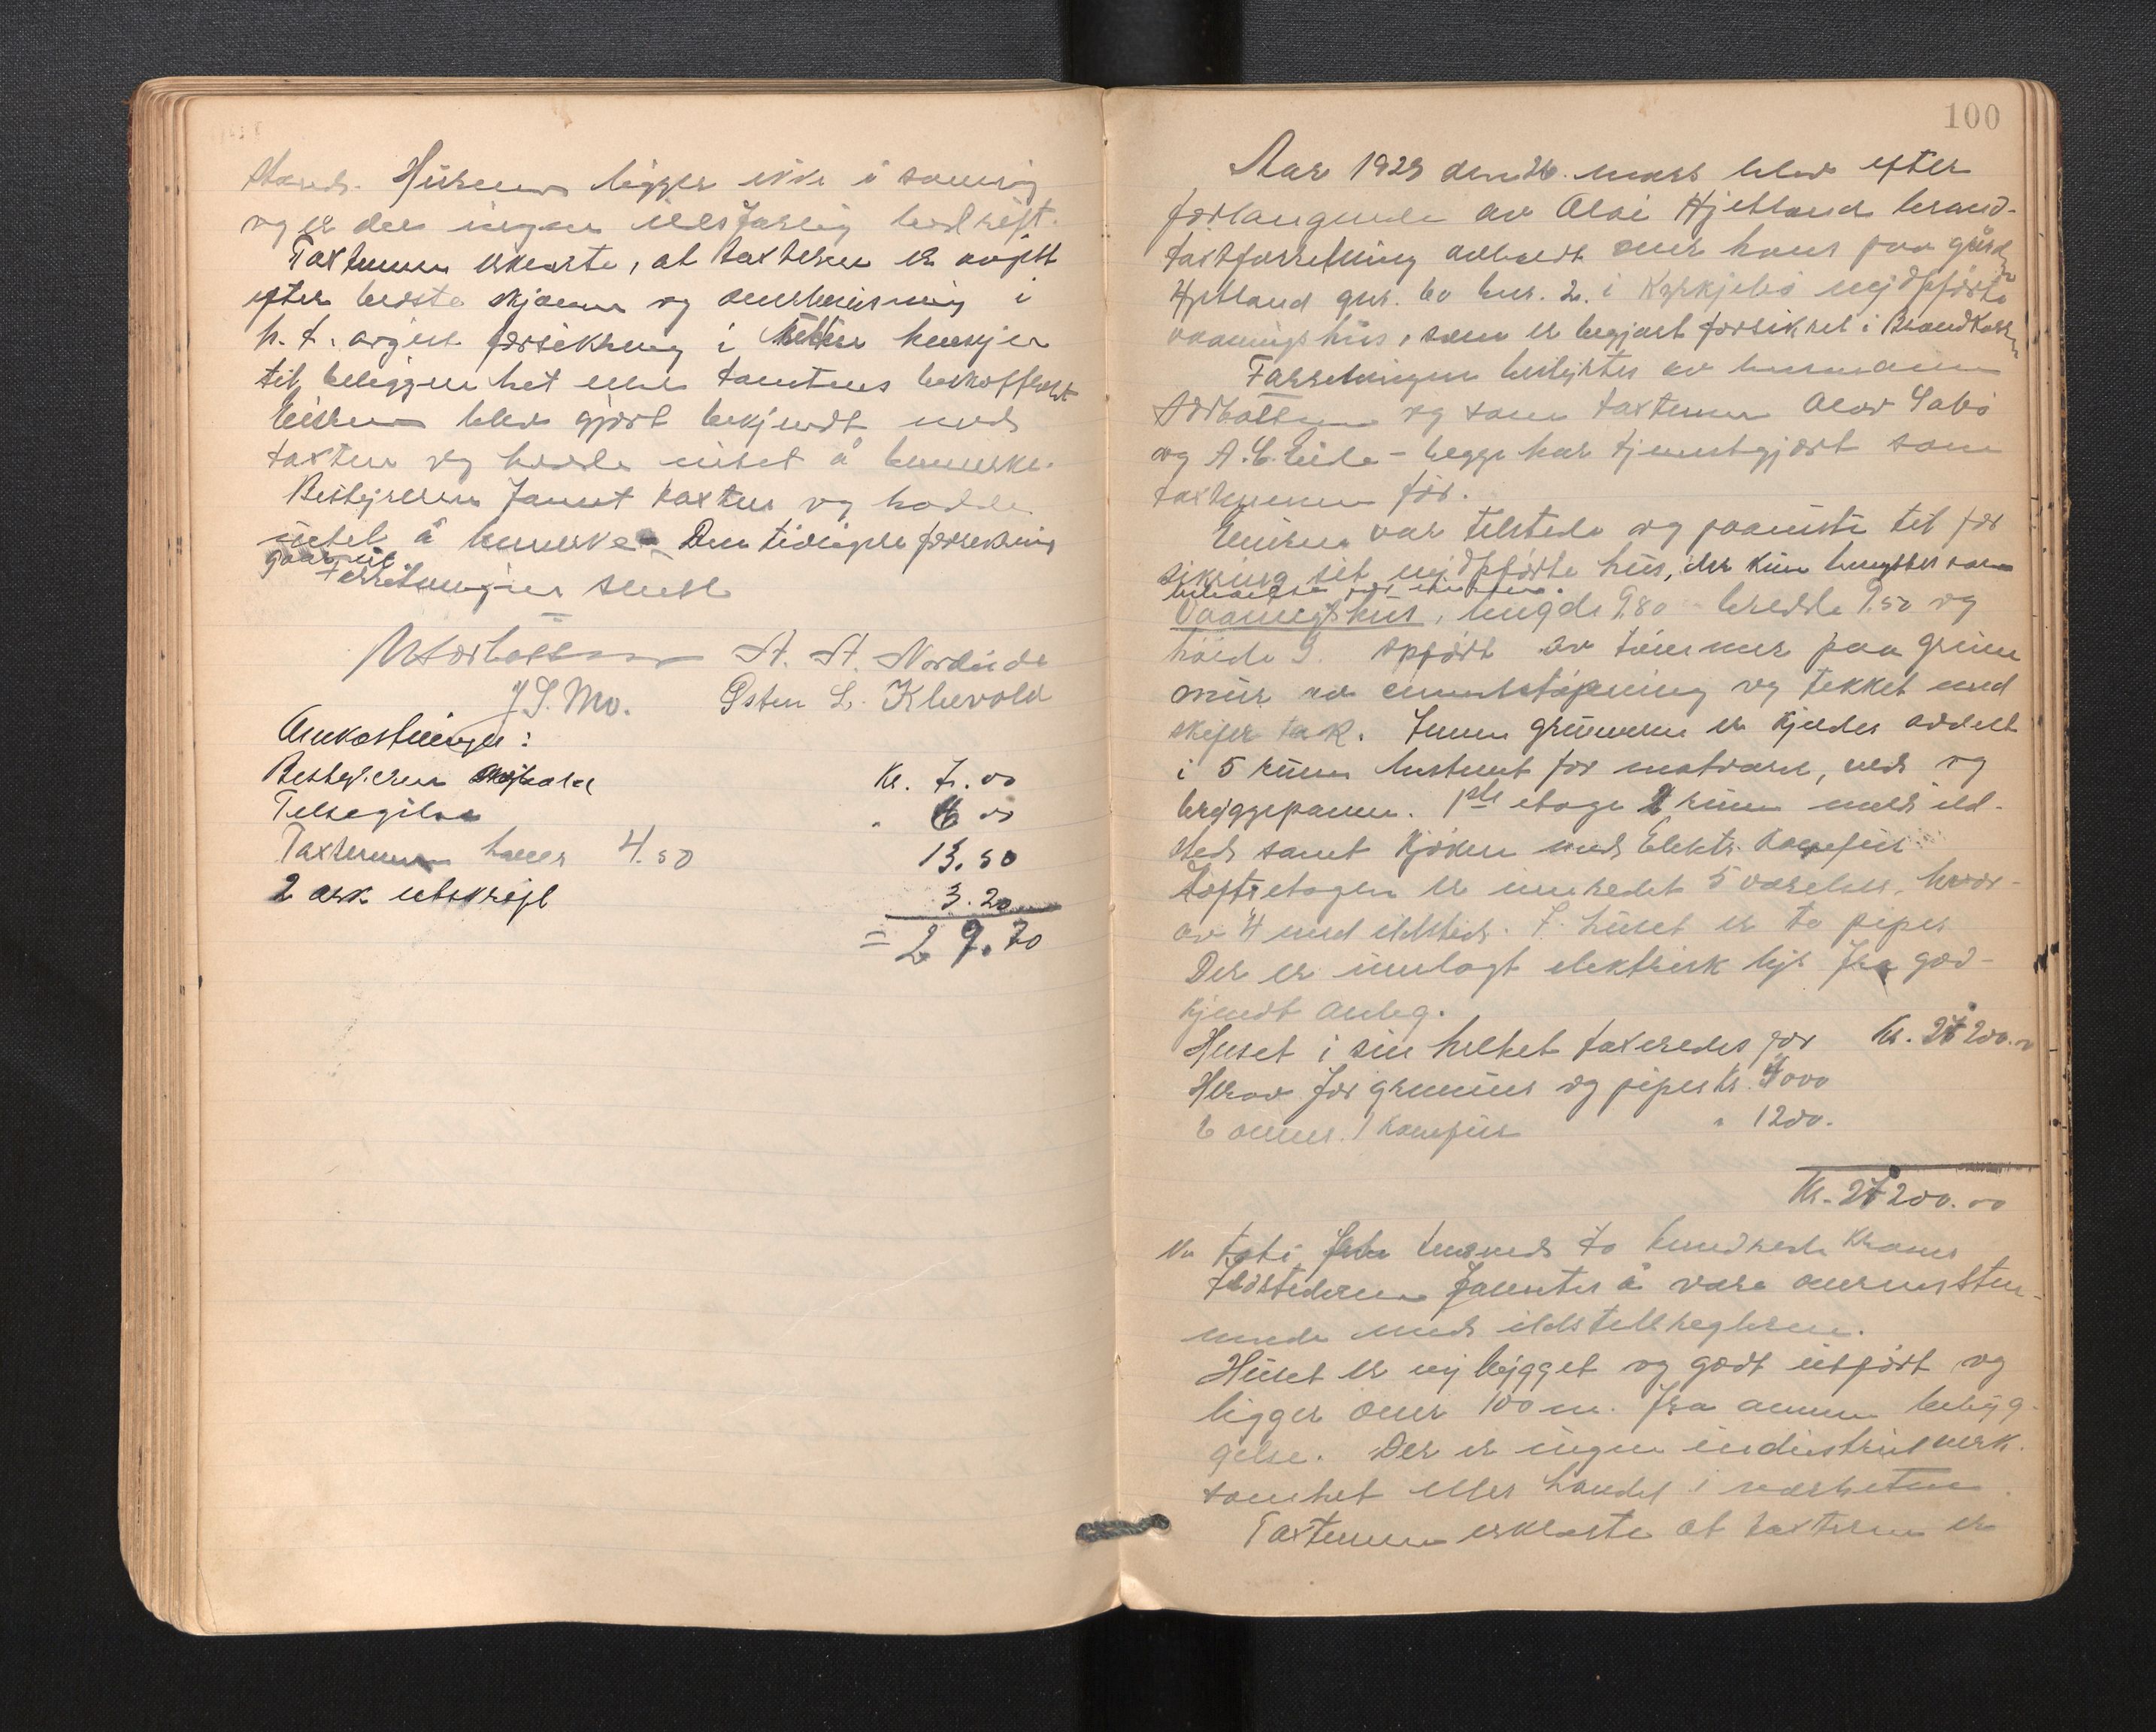 stand. Husene ligger ikke i samring
og er der ingen ildsfarlig bedrift.
Taxtmenn erklærte, at taxterne er avgitt
efter bedste skjønn og overbevisning
h. t. avgiven forsikring i henhold hensyn
til beliggenhet eller tomtens beskaffenhet
Eieren blev gjort bekjendt med
taxten og hadde intet å bemerke.
Bestyreren fannt taxten og hadde
intet å bemerke. Den tidligere forsikring
gaar ut.
Forretningen sluttet
A. A. Nordeide
J S. Mo. Østen L. Klævold
Omkostninger:
Bestyreren Kr. 7.00
Tilsigelse " 6 00
Taxtmenn haver 4.50 13.50
2 ark utskrift 3.20
= 29.70
100
Aar 1923 den 26. mars blev efter
forlangende av Olai Hjetland brand-
taxtforretning avholdt over hans paa gård
Hjetland gnr. 60 bnr. 2. i Kyrkjebø nyopførte
vaaningshus, som er begjært forsikret i Brandkassen
Forretningen bestyrtes av lensmann
Størbotten og som taxtmenn Olav Sabø
og A. C. Eide - begge har tjenestgjort som
taxtmenn før.
Eieren var tilstede og paaviste til for
sikring sit nyopførte hus, der kun benyttes som
Vaaningshus, lengde 9.80 bredde 9.50 og
høide 9. opført av tømmer paa grunn
mur av cementstøpning og tekket med
skifer tak. Innen grunmuren er kjelder avdelt
i 5 rum bestemt for matvarer, ved og
bryggepanne. 1ste etage 2 rum med ild-
sted samt kjøken med Elektr. komfur
Loftsetagen er innredet 5 værelser, hvor-
av 4 med ildsted. I huset er to piper
Der er innlagt elektrisk lys fra god-
kjendt anleg.
Huset i sin helhet taxeredes for Kr. 27200.00
Herav for grunmur og piper Kr. 4000
6 ovner. 1 komfur " 1200.
Kr. 27200.00
tusend to hundrede Kroner
Ildstederne fanntes å være overensstem-
mende med ildstellreglerne.
Huset er ny bygget og godt utført og
ligger over 100 m. fra annen bebyg-
gelse. Der er ingen industriel verk-
somhet eller handel i nærheten.
Taxtmenn erklærte at taxterne er